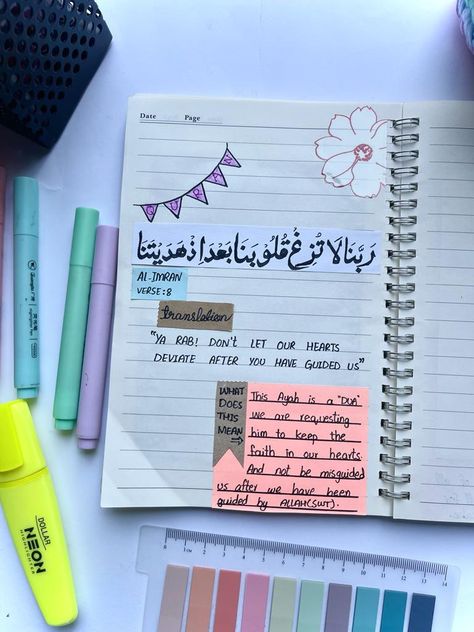 Date Page
QURAN
رَبَّنَا لَا تُزِغْ قُلُوبَنَا بَعْدَ اِذْ هَدَيْتَنَا
Al-IMRAN
VERSE:8
translation
"YA RAB! DON't LET OUR HEARTS
DEVIATE AFTER YOU HAVE GUIDED US"
WHAT
DOES
THIS
MEAN
This Ayah is a "DUA"
we are requesting
him to keep the
faith in our hearts.
And not be misguided
us after we have been
guided by ALLAH(SWT).
DOLLAR
NEON
HIGHLIGHTER
1cm 2 3 4 5 6 7 8 9 10 11 12 13 14